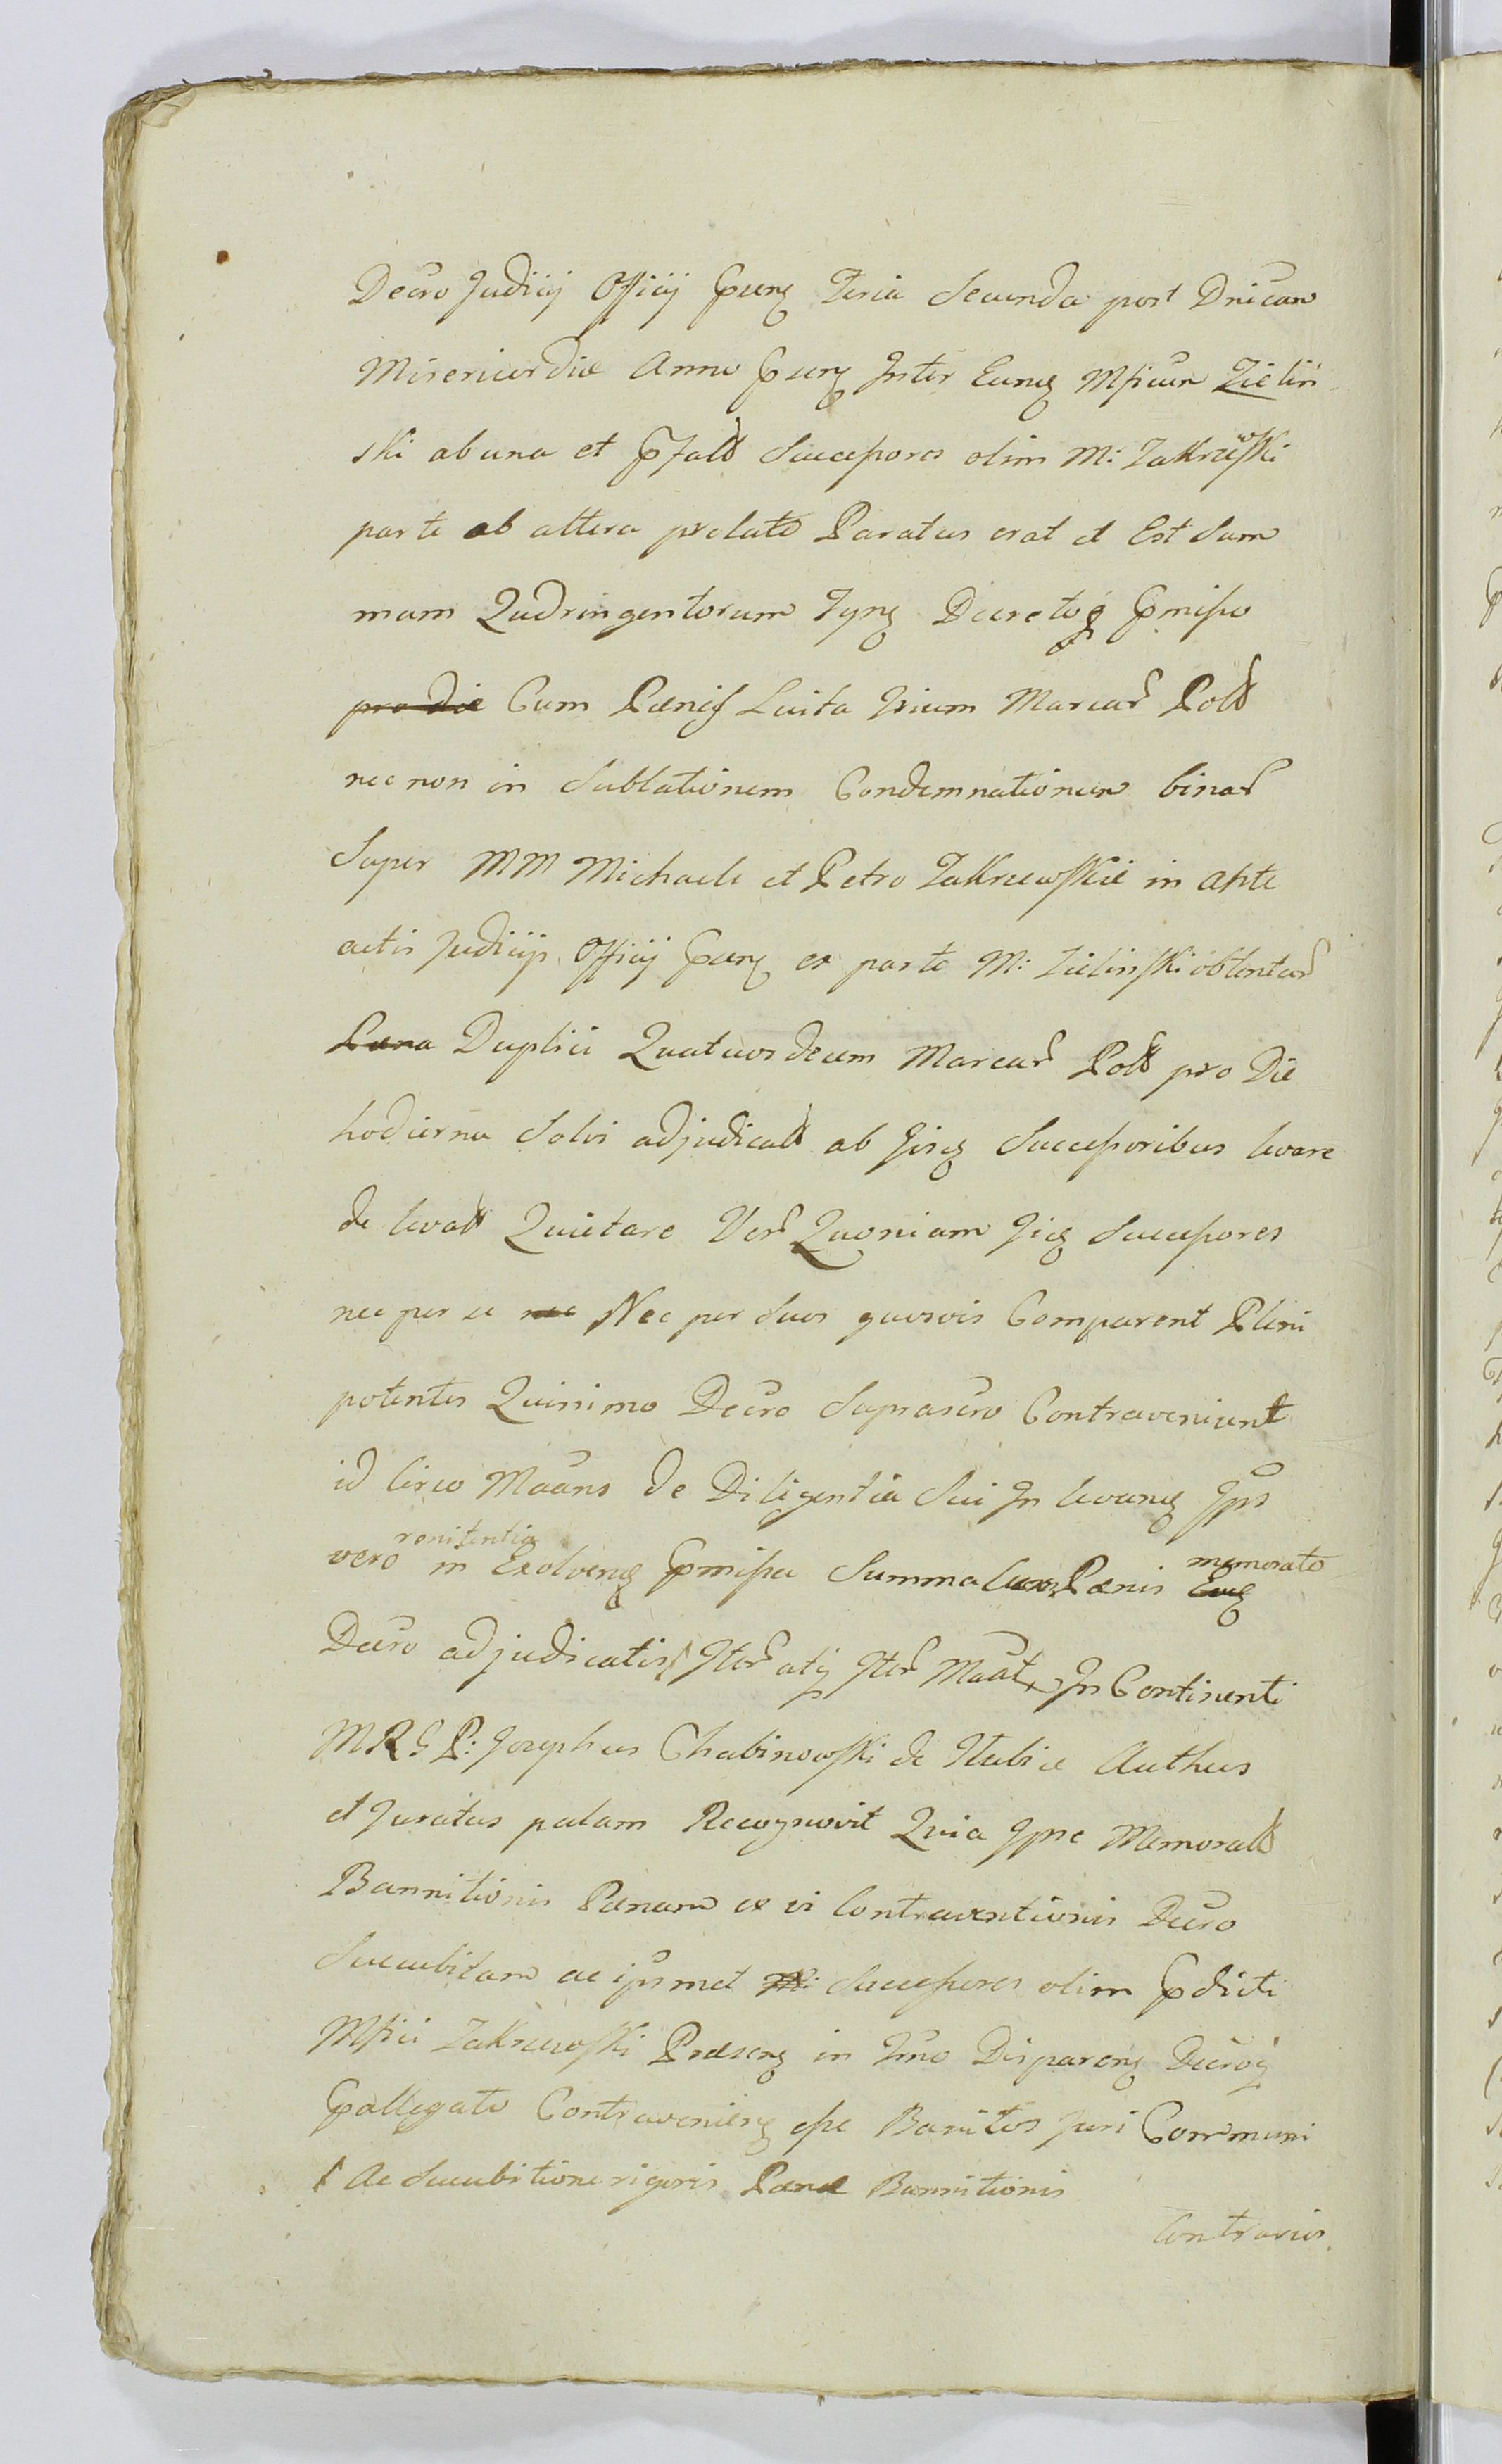 Decro Judicij Officij Psenq Feria Secunda post Dnicam
Misericordiæ Anno Psenq Inter Eunq Mficum Zieliń
ski ab una et Pfatt Successores olim M: Zakrzewski
parte ab altera prolato Paratus erat et Est Sum
mam Quadringentorum Tynf Decretoq Pmisso
pro die Cum Pænis Luita trium Marcar Poll
nec non in Sublationem Condemnationum binar
Super MM Michaele et Petro Zakrzewskie in Apte
actis Judicijs Officij Psenq ex parte M: Zielinski obtentar
Pæna Duplici Quatuordecim Marcar Poll pro Die
hodierna Solvi adjudicatt ab Iisq Successoribus levare
de levatt Quietare Ver Quoniam Iiq Successores
nec per se nec Nec per Suos quosvis Comparent Pleni
potentes Quinimo Decro Suprascro Contraveniunt
id circo Maans de Diligentia Sui In levanq Ipsa
vero renitentia in Exolvenq Pmissa Summa cum Pænis Euq memorato
Decro adjudicatis Iter atq Iter Maat In Continenti
MRG P: Josephus Chabinowski de Stubice Authus
et Juratus palam Recognovit Quia Ipse Memoratt
Bannitionis Pænam ex vi Contraventionis Decro
Succubitam ac ipsmet M: Successores olim Pdicti
Mfici Zakrzewski Præsenq in Tmno Disparenq Decroq
Pallegato Contravenienq esse Banitos Juri Communi
Ac Succubitione rigoris Pænæ Bannitionis
Contrarios.